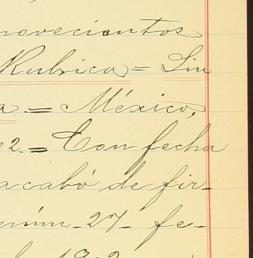 novecientos
Rubrica = Sin
a = México,
2. = Con fecha
acabó de fir-
núm. 27 fe-